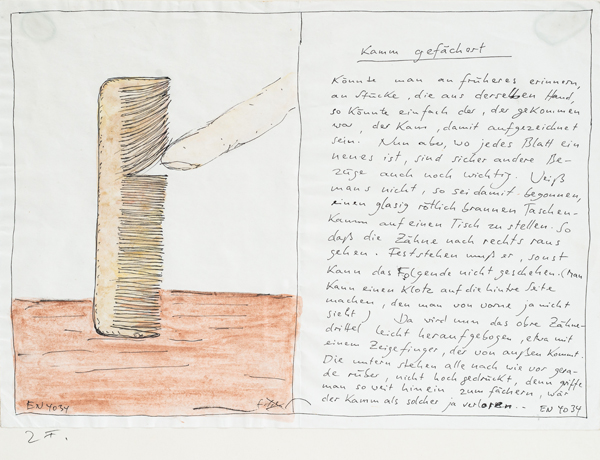 Kamm gefächert
Könnte man an früheres erinnern,
an Stücke, die aus derselben Hand,
so könnte einfach der, der gekommen
war, der Kam, damit aufgezeichnet
sein. Nun aber, wo jedes Blatt ein
neues ist, sind sicher andere Be-
züge auch noch wichtig. Weiß
mans nicht, so sei damit begonnen,
einen glasig rötlich braunen Taschen-
kamm auf einen Tisch zu stellen. So
daß die Zähne nach rechts raus
gehen. Feststehen muß er, sonst
kann das Folgende nicht geschehen. (Man
kann einen Klotz auf die hintre Seite
machen, den man von vorne ja nicht
sieht) Da wird nun das obre Zähne-
drittel leicht heraufgebogen, etwa mit
einem Zeigefinger, der von außen kommt.
Die untern stehen alle nach wie vor gera-
de rüber, nicht hochgedrückt, denn griffe
man so weit hinein zum fächern, wär
der Kamm als solcher ja verloren..
EN 4034
EN 4034
2 II.